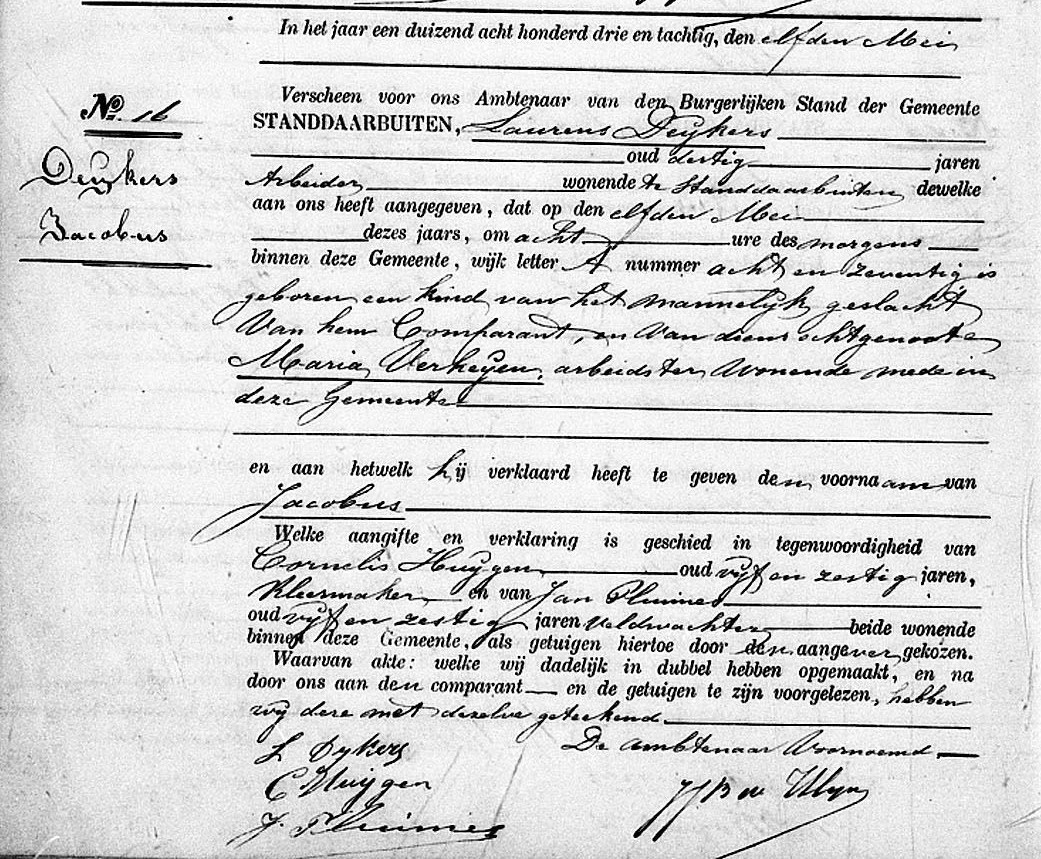 In het jaar een duizend acht honderd drie en tachtig, den elfden Mei
No. 16
Deykers
Jacobus
Verscheen voor ons Ambtenaar van den Burgerlijken Stand der Gemeente
STANDDAARBUITEN, Laurens Deykers
oud dertig jaren
Arbeider wonende te Standdaarbuiten dewelke
aan ons heeft aangegeven, dat op den elfden Mei
dezes jaars, om acht ure des morgens
binnen deze Gemeente, wijk letter A nummer acht en zeventig is
geboren een kind van het mannelyk geslacht
Van hem Comparant, en Van diens echtgenoote
Maria Verheyen, arbeidster Wonende mede in
deze Gemeente
en aan hetwelk hij verklaard heeft te geven den voornaam van
Jacobus
Welke aangifte en verklaring is geschied in tegenwoordigheid van
Cornelis Huygen oud vyf en zestig jaren,
Kleermaker en van Jan Pluimes
oud vyf en zestig jaren veldwachter beide wonende
binnen deze Gemeente, als getuigen hiertoe door den aangever gekozen.
Waarvan akte: welke wij dadelijk in dubbel hebben opgemaakt, en na
door ons aan den comparant en de getuigen te zijn voorgelezen, hebben
wy deze met dezelve geteekend
L Dykers
De ambtenaar Voornoemd
C Huygen
J. Pluimes